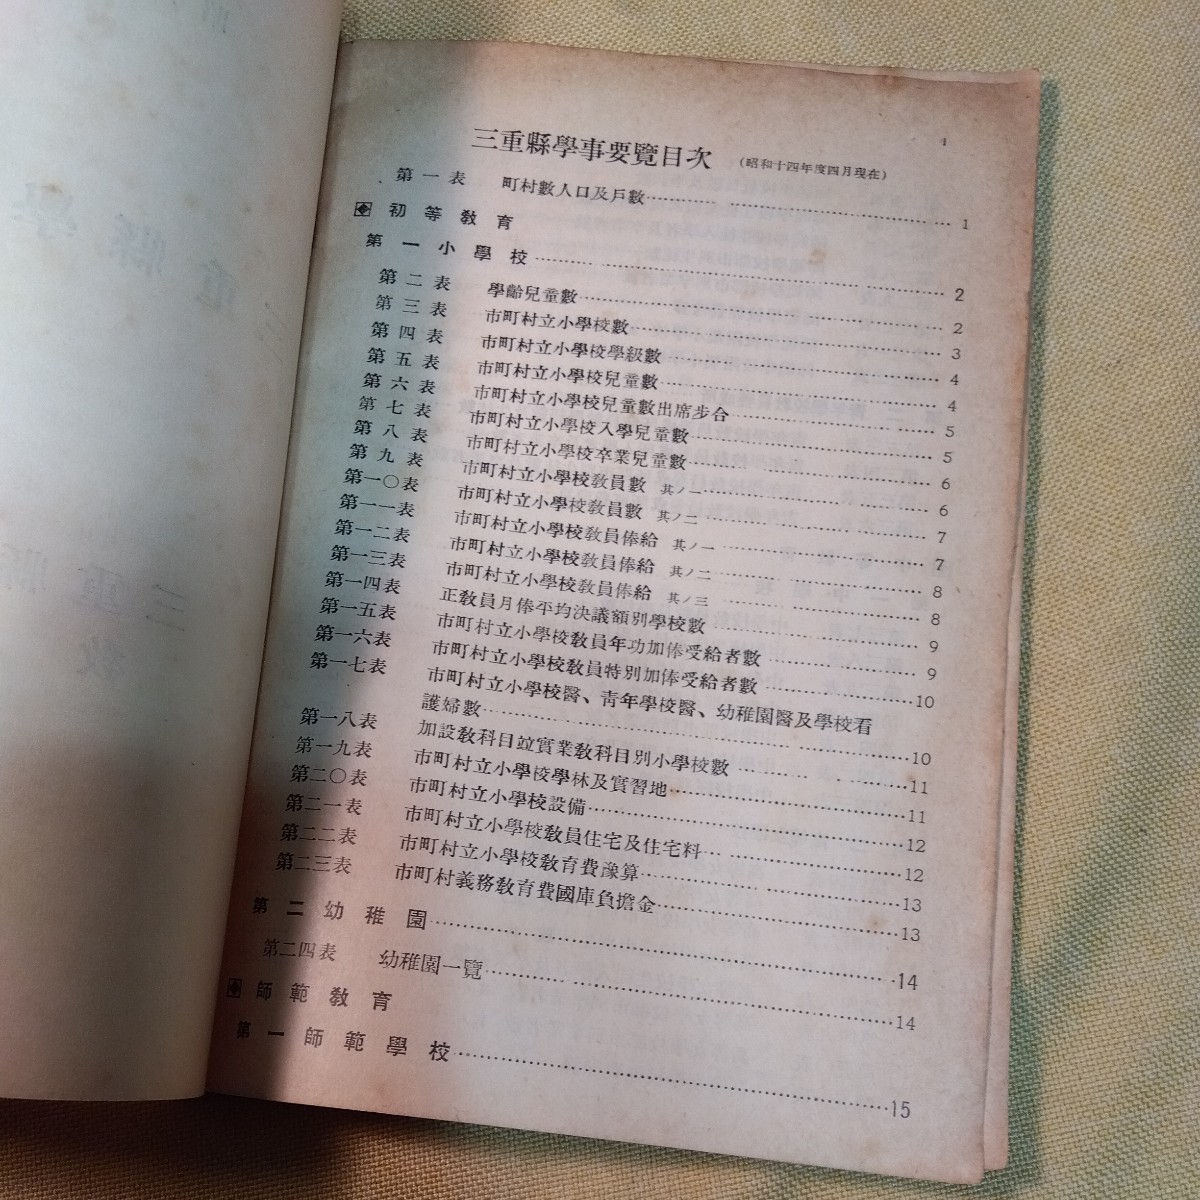 三重縣學事要覽目次 (昭和十四年度四月現在)
第一表 町村數人口及戶數 1
初等敎育
第一小學校 2
第二表 學齡兒童數 2
第三表 市町村立小學校數 3
第四表 市町村立小學校學級數 4
第五表 市町村立小學校兒童數 4
第六表 市町村立小學校兒童數出席步合 5
第七表 市町村立小學校入學兒童數 5
第八表 市町村立小學校卒業兒童數 6
第九表 市町村立小學校敎員數 其ノ一 6
第一〇表 市町村立小學校敎員數 其ノ二 7
第一一表 市町村立小學校敎員俸給 其ノ一 7
第一二表 市町村立小學校敎員俸給 其ノ二 8
第一三表 市町村立小學校敎員俸給 其ノ三 8
第一四表 正敎員月俸平均決議額別學校數 9
第一五表 市町村立小學校敎員年功加俸受給者數 9
第一六表 市町村立小學校敎員特別加俸受給者數 10
第一七表 市町村立小學校醫、靑年學校醫、幼稚園醫及學校看
護婦數 10
第一八表 加設敎科目竝實業敎科目別小學校數 11
第一九表 市町村立小學校學林及實習地 11
第二〇表 市町村立小學校設備 12
第二一表 市町村立小學校敎員住宅及住宅料 12
第二二表 市町村立小學校敎育費豫算 13
第二三表 市町村義務敎育費國庫負擔金 13
第二幼稚園 14
第二四表 幼稚園一覽 14
師範敎育
第一師範學校 15